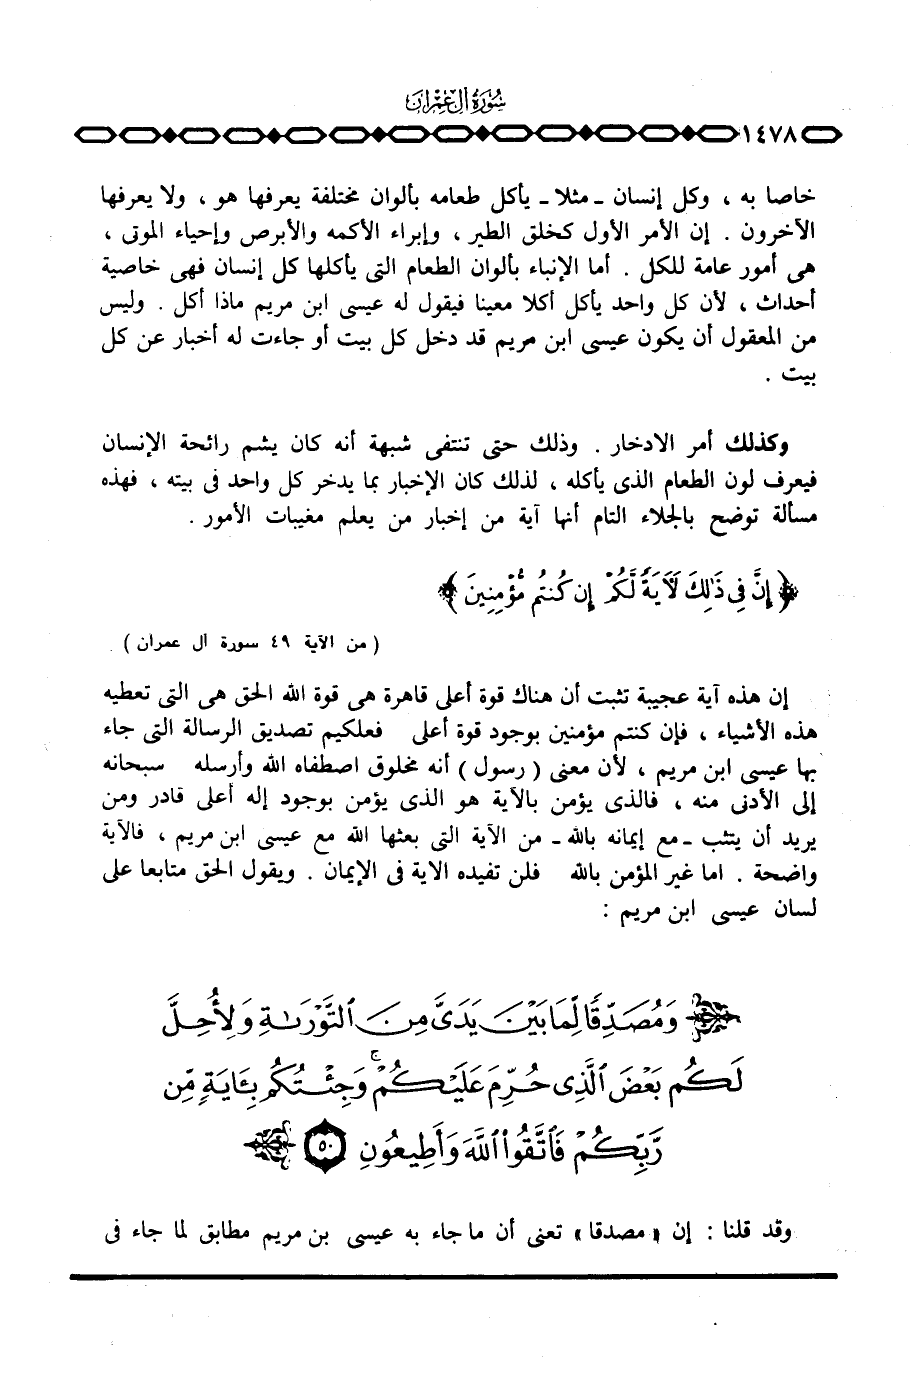 سورة آل عمران
١٤٧٨
خاصا به ، وكل إنسان ـ مثلا ـ يأكل طعامه بألوان مختلفة يعرفها هو ، ولا يعرفها
الآخرون . إن الأمر الأول كخلق الطير ، وإبراء الأكمه والأبرص وإحياء الموتى ،
هى أمور عامة للكل . أما الإنباء بألوان الطعام التى يأكلها كل إنسان فهى خاصية
أحداث ، لأن كل واحد يأكل أكلا معينا فيقول له عيسى ابن مريم ماذا أكل . وليس
من المعقول أن يكون عيسى ابن مريم قد دخل كل بيت أو جاءت له أخبار عن كل
بيت .
وكذلك أمر الادخار . وذلك حتى تنتفى شبهة أنه كان يشم رائحة الإنسان
فيعرف لون الطعام الذى يأكله ، لذلك كان الإخبار بما يدخر كل واحد فى بيته ، فهذه
مسألة توضح بالجلاء التام أنها آية من إخبار من يعلم مغيبات الأمور .
﴿ إِنَّ فِى ذَٰلِكَ لَآيَةً لَّكُمْ إِن كُنتُم مُّؤْمِنِينَ ﴾
( من الآية ٤٩ سورة آل عمران )
إن هذه آية عجيبة تثبت أن هناك قوة أعلى قاهرة هى قوة الله الحق هى التى تعطيه
هذه الأشياء ، فإن كنتم مؤمنين بوجود قوة أعلى فعلكيم تصديق الرسالة التى جاء
بها عيسى ابن مريم ، لأن معنى ( رسول ) أنه مخلوق اصطفاه الله وأرسله سبحانه
إلى الأدنى منه ، فالذى يؤمن بالآية هو الذى يؤمن بوجود إله أعلى قادر ومن
يريد أن يتثب ـ مع إيمانه بالله ـ من الآية التى بعثها الله مع عيسى ابن مريم ، فالآية
واضحة . اما غير المؤمن بالله فلن تفيده الاية فى الإيمان . ويقول الحق متابعا على
لسان عيسى ابن مريم :
وَمُصَدِّقًا لِّمَا بَيْنَ يَدَىَّ مِنَ ٱلتَّوْرَىٰةِ وَلِأُحِلَّ
لَكُم بَعْضَ ٱلَّذِى حُرِّمَ عَلَيْكُمْ ۚ وَجِئْتُكُم بِـَٔايَةٍ مِّن
رَّبِّكُمْ فَٱتَّقُوا۟ ٱللَّهَ وَأَطِيعُونِ ٥٠
وقد قلنا : إن « مصدقا » تعنى أن ما جاء به عيسى بن مريم مطابق لما جاء فى